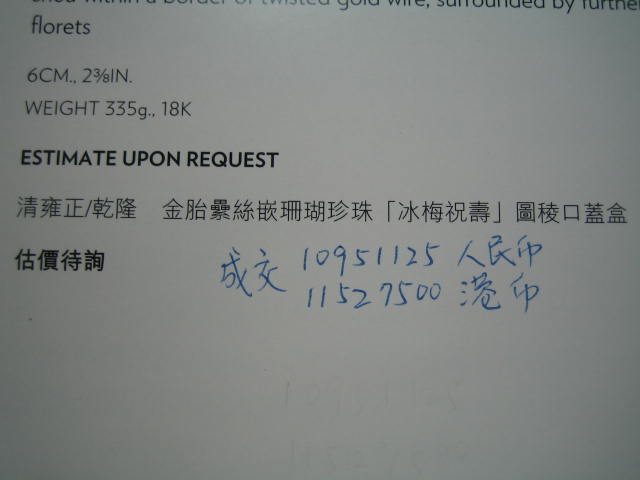 within a border of twisted gold wire, surrounded by further
florets
6CM., 2⅜IN.
WEIGHT 335g., 18K
ESTIMATE UPON REQUEST
清雍正/乾隆 金胎纍絲嵌珊瑚珍珠「冰梅祝壽」圖稜口蓋盒
估價待詢
成交 10951125 人民币
11527500 港币